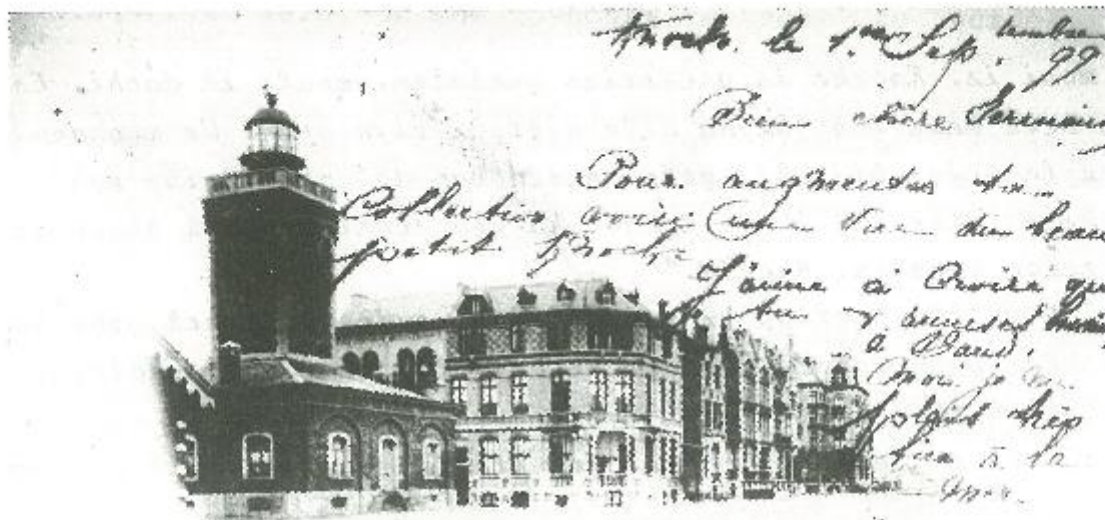 Knocke, le 1er Septembre 99
Bien chère Germaine
Pour augmenter ta
Collection voici une Vue du beau
petit Knocke
J'aime à croire que
tu t'amuses
à Gand.
Moi je me
plais très
bien à la
mer.